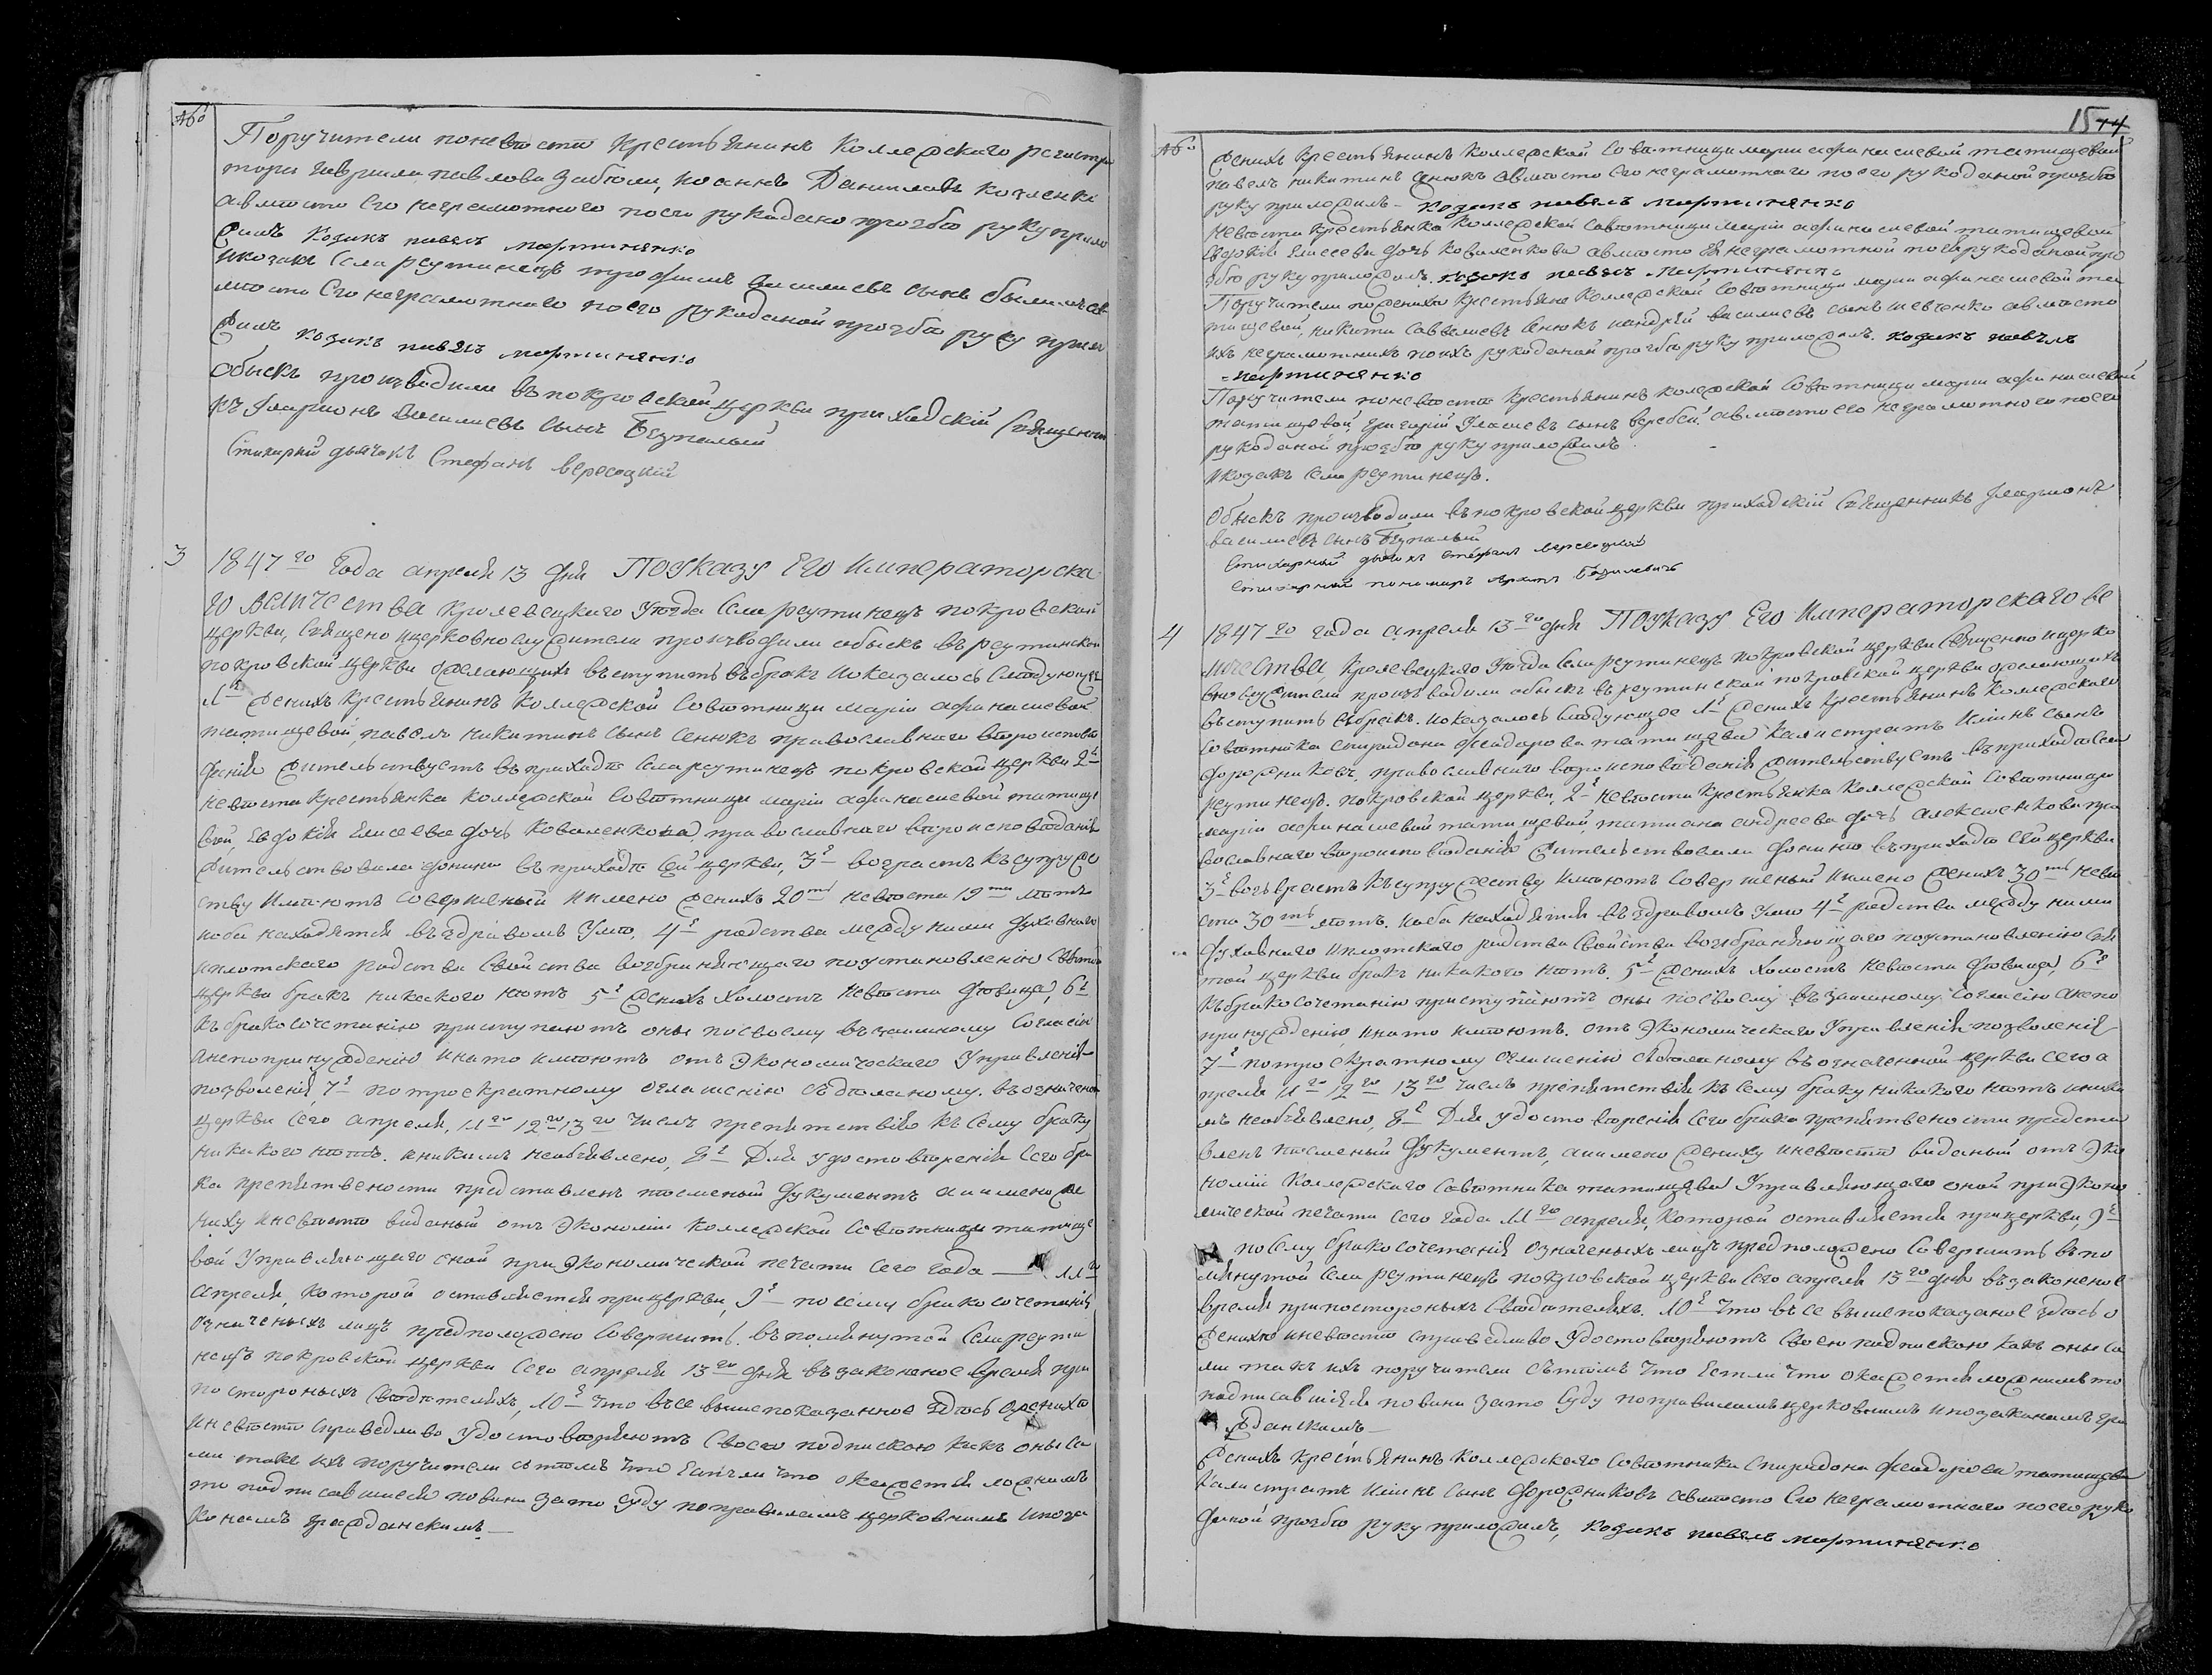 №
Поручители поневести крестьянинъ Коллежского регистра
тора гаврила павлова забіоли, иоаннъ Даниловъ козленко
авместо Его неграмотного посго рукодано прозбо руку прило
жилъ козакъ павелъ мартиненко
Икозакъ села реутинецъ трофимъ василиевъ сынъ
место Его неграмотнаго поего рукоданой прозбо руку прило
жилъ козакъ павелъ мартиненко
Обыскъ производили въ покровской церкви приходскій Священни
къ Иларионъ василиевъ сынъ Безпалый
Стихарный дьячокъ Стефанъ вересоцкій
3 1847го года апреля 13 дня ПОУказу ЕГО Императорска
го Величества кролевецкого Уезда Села реутинецъ покровской
церкви, Священо ицерковнослужители производили обыскъ въ реутинской
покровской церкви желающихъ въступить въбракъ Иоказалось Следующее
1е Женихъ крестьянинъ Коллежской Советници маріи афанасиевой
татищевой, павелъ никитинъ сынъ Сенюкъ православнаго вероиспове
данія жительствуетъ въприходе села реутинецъ покровской церкви 2е
Невеста крестьянка Коллежской Советници маріи афанасиевой татище
вой, Евдокія Елисеева дочь коваленкова, православнаго вероисповеданія
жительствовала донини въприходе Сей церкви, 3е возрастъ къ супруже
ству Имеютъ совершеный Именно женихъ 20ть невеста 19ти летъ
иоба находятся въздравомъ Уме, 4е родства между ними духовного
иплотскаго родства Свойства возбраняющаго поустановленію Святой
церкви бракъ никакого нетъ 5е Женихъ холостъ Невеста девица, 6е
къбракосочетанію приступаютъ оны посвоему възаимному Согласію
анепопринужденію инато имеютъ отъ Экономическаго Управленія
позволенія, 7е потроекратному оглашенію съделаному. въозначеной
церкви сего апреля, 11го 12го 13го числъ препятствія къ сему браку
никакого нетъ. иникимъ необявлено, 8е Для удостоверенія Сего бра
ка препятвености представленъ писменый документъ аимено же
ниху иневесте виданый отъ Экономіи коллежской Советници татище
вой Управляющаго оной при Экономической печати сего года — 11го
апреля, которой оставляется прицеркви, 9е посему бракосочетаніе
означеныхъ лицъ предположено Совершить въпомянутой Села реути
нецъ покровской церкви сего апреля 13го дня въ законеное время при
постороныхъ Свидетеляхъ, 10е Что въсе вышепоказанное здесь ожениху
иневести справедливо Удостоверяютъ Своею подпискою какъ оны са
ми такъ ихъ поручители стемъ что Естли что окажется ложнимъ
то подписавшиеся повини зато суду поправиламъ церковнимъ ипоза
конамъ гражданскимъ —
15 14
№
женихъ крестьянинъ Коллежской Советници маріи афанасиевой татищевой
павелъ никитинъ Сенюкъ авместо Его неграмотнаго поего рукоданой прозбо
руку приложилъ — козакъ павелъ мартиненко
Невеста крестьянка Коллежской Советници маріи афанасиевой татищевой
Евдокія Елисеева дочь коваленкова авместо Ея неграмотной поея рукоданой про
збо руку приложилъ. козакъ павелъ мартиненко
Поручители поженихе крестьяне Коллежской Советници маріи афанасиевой та
тищевой, никита Савелиевъ Сенюкъ иандрей василиевъ сынъ шевченко авместо
ихъ неграмотнихъ поихъ рукоданой прозбо руку приложилъ. козакъ павелъ
мартиненко
Поручители поневесте крестьянинъ колежской Советници маріи афанасиевой
татищевой, григорій Власиевъ сынъ веребей, авместо его неграмотного поего
рукоданой прозбо руку приложилъ —
Икозакъ села реутинецъ.
Обыскъ производили въпокровской церкви приходскій Священникъ Иларионъ
василиевъ сынъ Безпалый
Стихарный дьячокъ Стефанъ вересоцкій
Стихарный пономаръ Архипъ Базилевичъ
4 1847го года апреля 13го дня ПОУказу Его Императорскаго ве
личества, кролевецкаго Уезда Села реутинецъ покровской церкви Священо ицерко
внослужители производили обыскъ въ реутинской покровской церкви желающихъ
въступить въбракъ. иоказалось Следующее 1е Женихъ крестьянинъ Коллежскаго
Советника спиридона феодорова татищева Калистратъ Илиинъ сынъ
дорожниковъ, православнаго вероисповеданія жительствуетъ въприходе села
реутинецъ. покровской церкви, 2е Невеста крестьянка Коллежской Советници
маріи афанасиевой татищевой, татиана андреева дочь алексиенкова пра
вославнаго вероисповеданія жительствовала донине въприходе сей церкви
3е возърастъ къ супружеству Имеютъ совершеный Имено женихъ 30ть неве
ста 30ть летъ. иоба находятся въздравомъ Уме 4е родства между ними
духовнаго иплотскаго родства Свойства возъбраняющаго поустановленію Свя
той церкви бракъ никакого нетъ. 5е Женихъ холостъ невеста девица, 6е
къбракосочетанію приступаютъ оны посвоему възаимному согласію анепо
принужденію, инато имеютъ. отъ Экономическаго Управленія позволенія
7е потроекратному оглашенію съделаному въозначенной церкви сего а
преля 11го 12го 13го числъ препятствія къ сему браку никакого нетъ иники
мъ необявлено, 8е Для удостоверенія Сего брака препятвености предста
вленъ писменый документъ, аимено жениху иневесте виданый отъ Эко
номіи Коллежскаго Советника татищева Управляющаго оной при Эконо
мической печати сего года 11го апреля, которой оставляется прицеркви, 9е
посему бракосочетанія означеныхъ лицъ предположено Совершить въпо
мянутой Села реутинецъ покровской церкви сего апреля 13го дня въ законеное
время припостороныхъ Свидетеляхъ, 10е Что въсе вышепоказаное здесь о
женихе иневесте справедливо Удостоверяютъ своею подпискою какъ оны са
ми такъ ихъ поручители стемъ что Естли что окажется ложнимъ то
подписавшияся повини зато Суду поправиламъ церковнимъ ипозаконамъ гра
жданскимъ —
Женихъ крестьянинъ Коллежскаго Советника Спиридона феодорова татищева
Калистратъ Илиинъ сынъ дорожниковъ авместо Его неграмотнаго поего руко
даной прозбо руку приложилъ, козакъ павелъ мартиненко